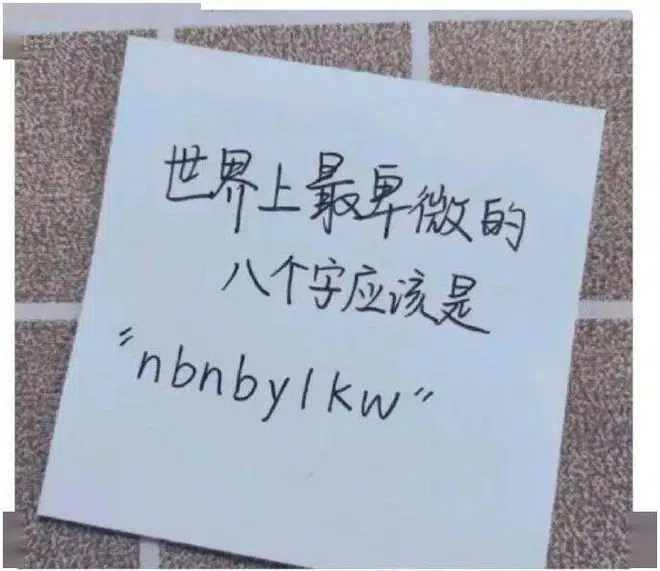 世界上最卑微的
八个字应该是
"nbnbylkw"